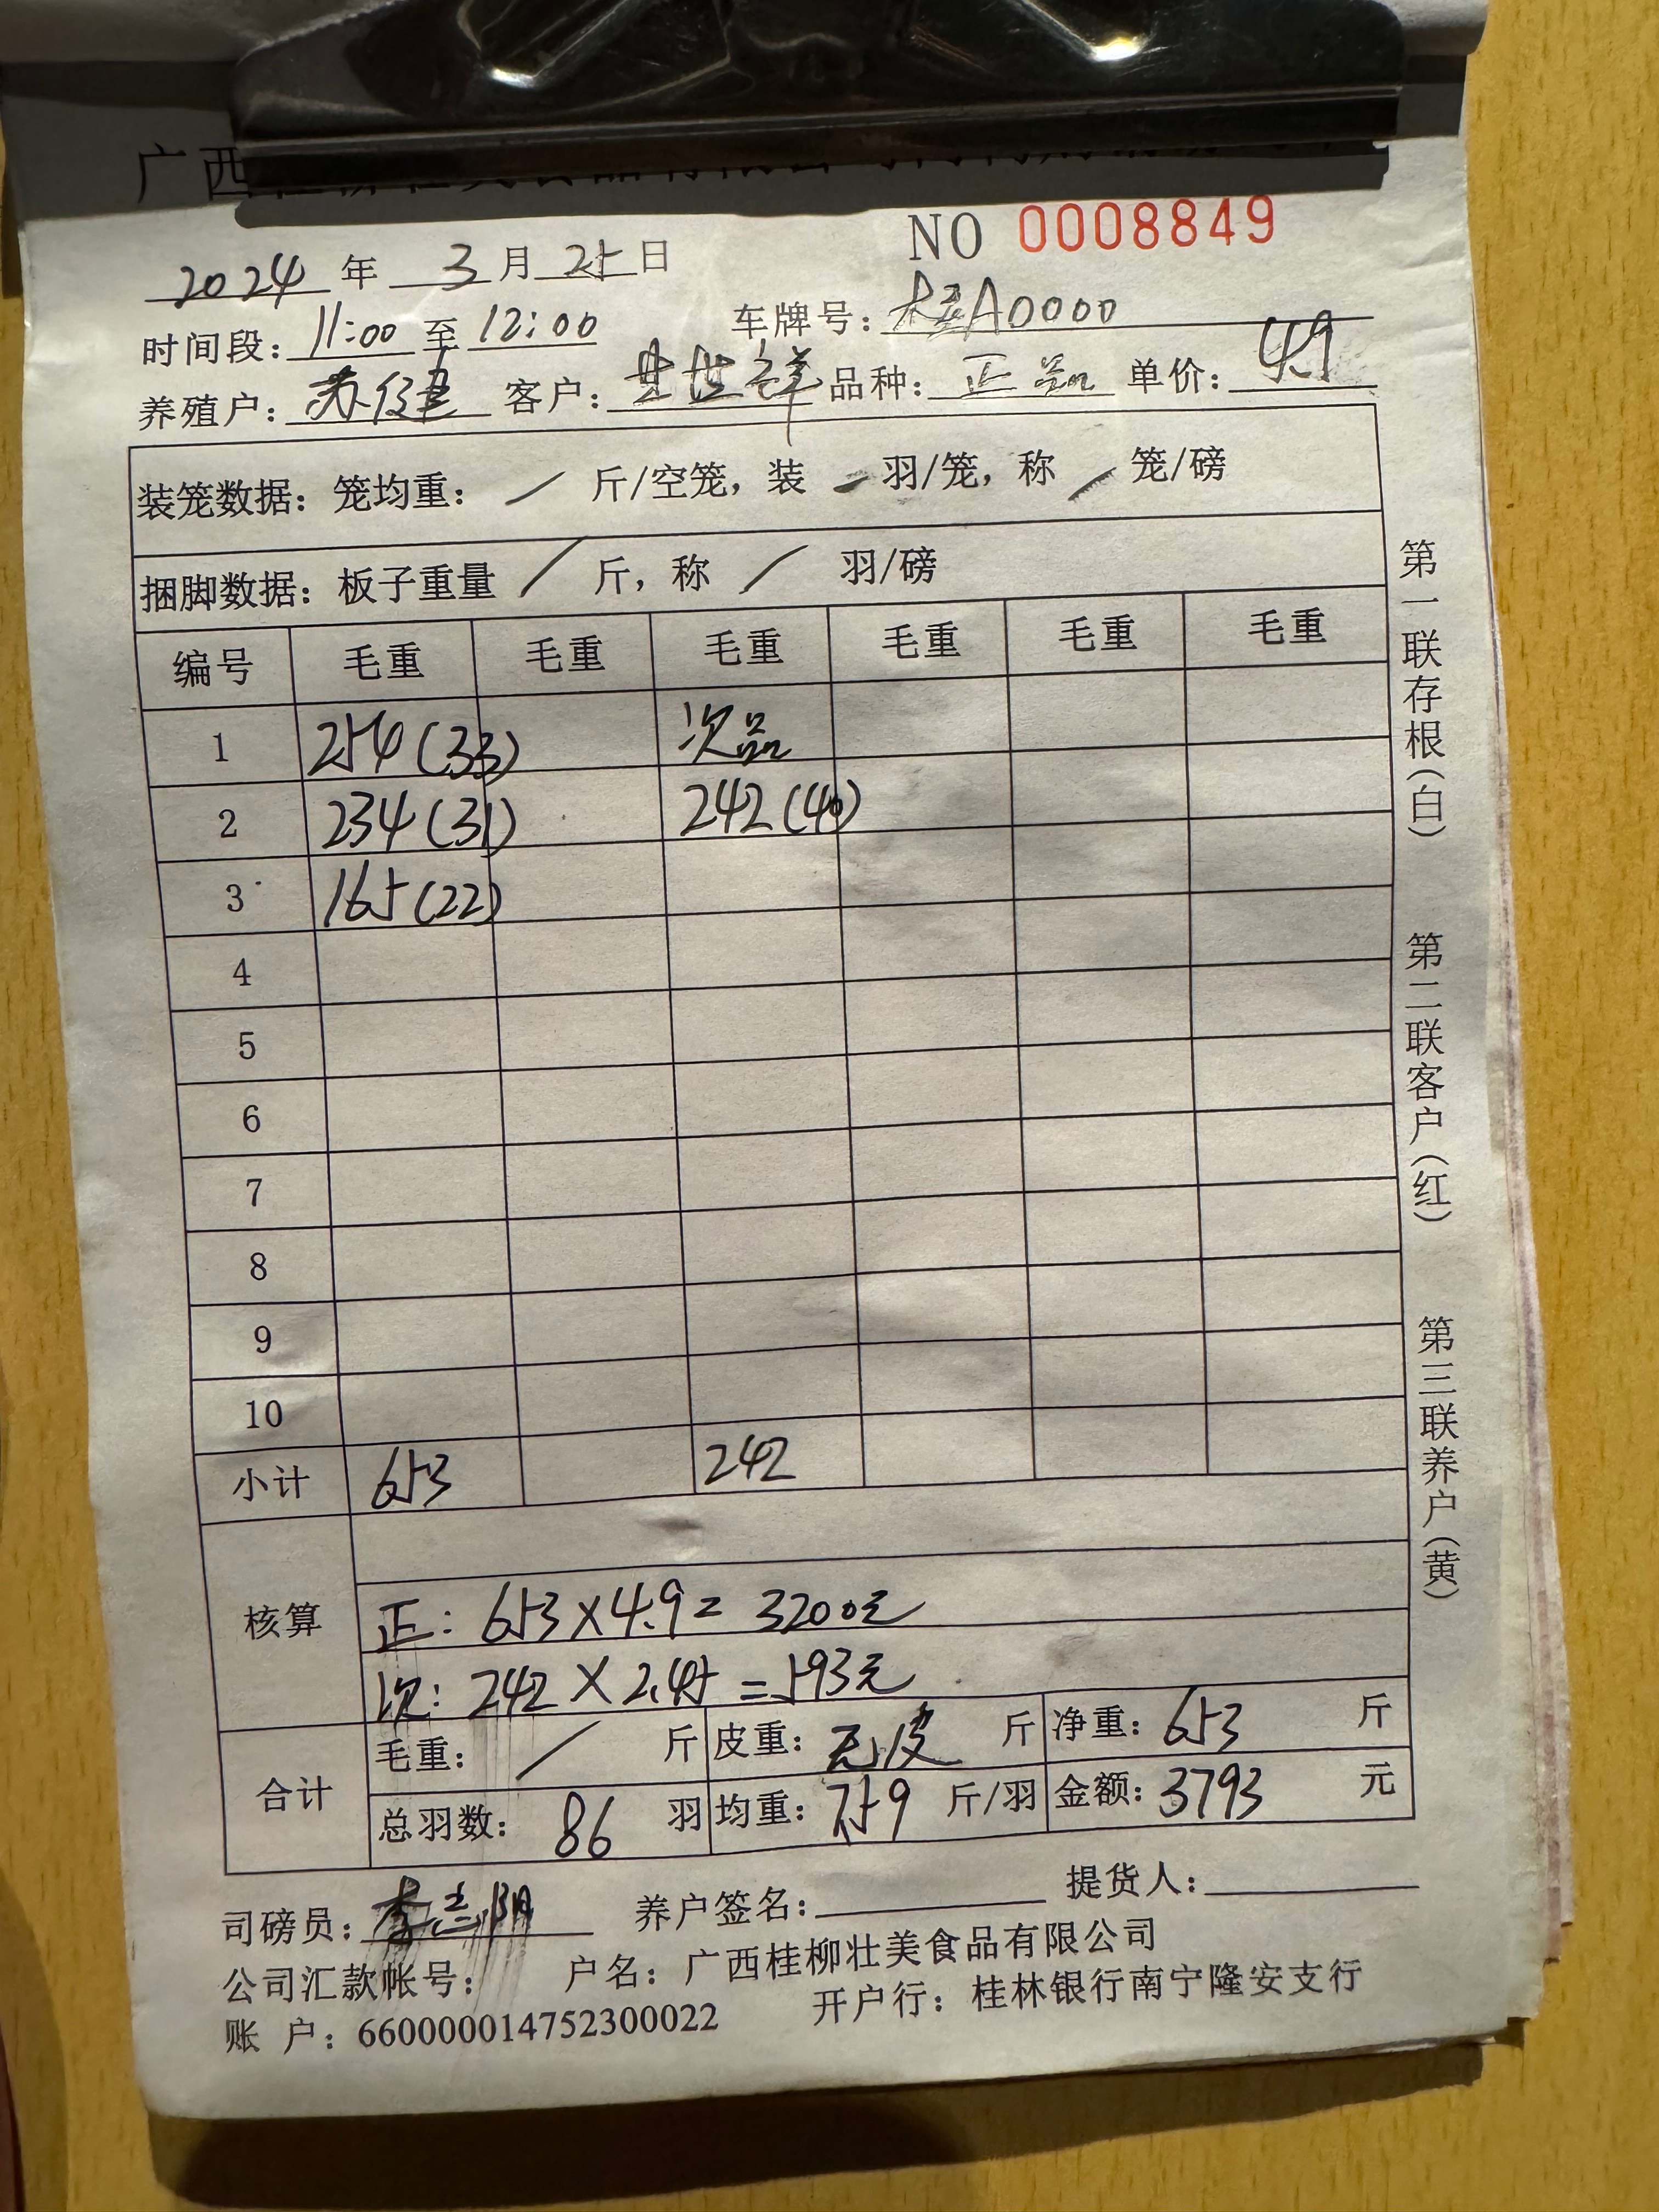 广西
NO 0008849
2024 年 3 月 25 日
时间段: 11:00 至 12:00 车牌号: 桂A0000
养殖户: 苏健 客户: 世祥 品种: 正品 单价: 4.9
装笼数据: 笼均重: / 斤/空笼, 装 - 羽/笼, 称 / 笼/磅
捆脚数据: 板子重量 / 斤, 称 / 羽/磅
编号 毛重 毛重 毛重 毛重 毛重 毛重
1 254(33) 次品
2 234(31) 242(40)
3 165(22)
4
5
6
7
8
9
10
小计 653 242
核算
正: 653×4.9= 3200元
次: 242×2.45=593元
合计
毛重: / 斤 皮重: 无皮 斤 净重: 653 斤
总羽数: 86 羽 均重: 7.59 斤/羽 金额: 3793 元
司磅员: 李志阳 养户签名: 提货人:
公司汇款帐号: 户名: 广西桂柳壮美食品有限公司
账 户: 660000014752300022 开户行: 桂林银行南宁隆安支行
第一联存根(白)
第二联客户(红)
第三联养户(黄)